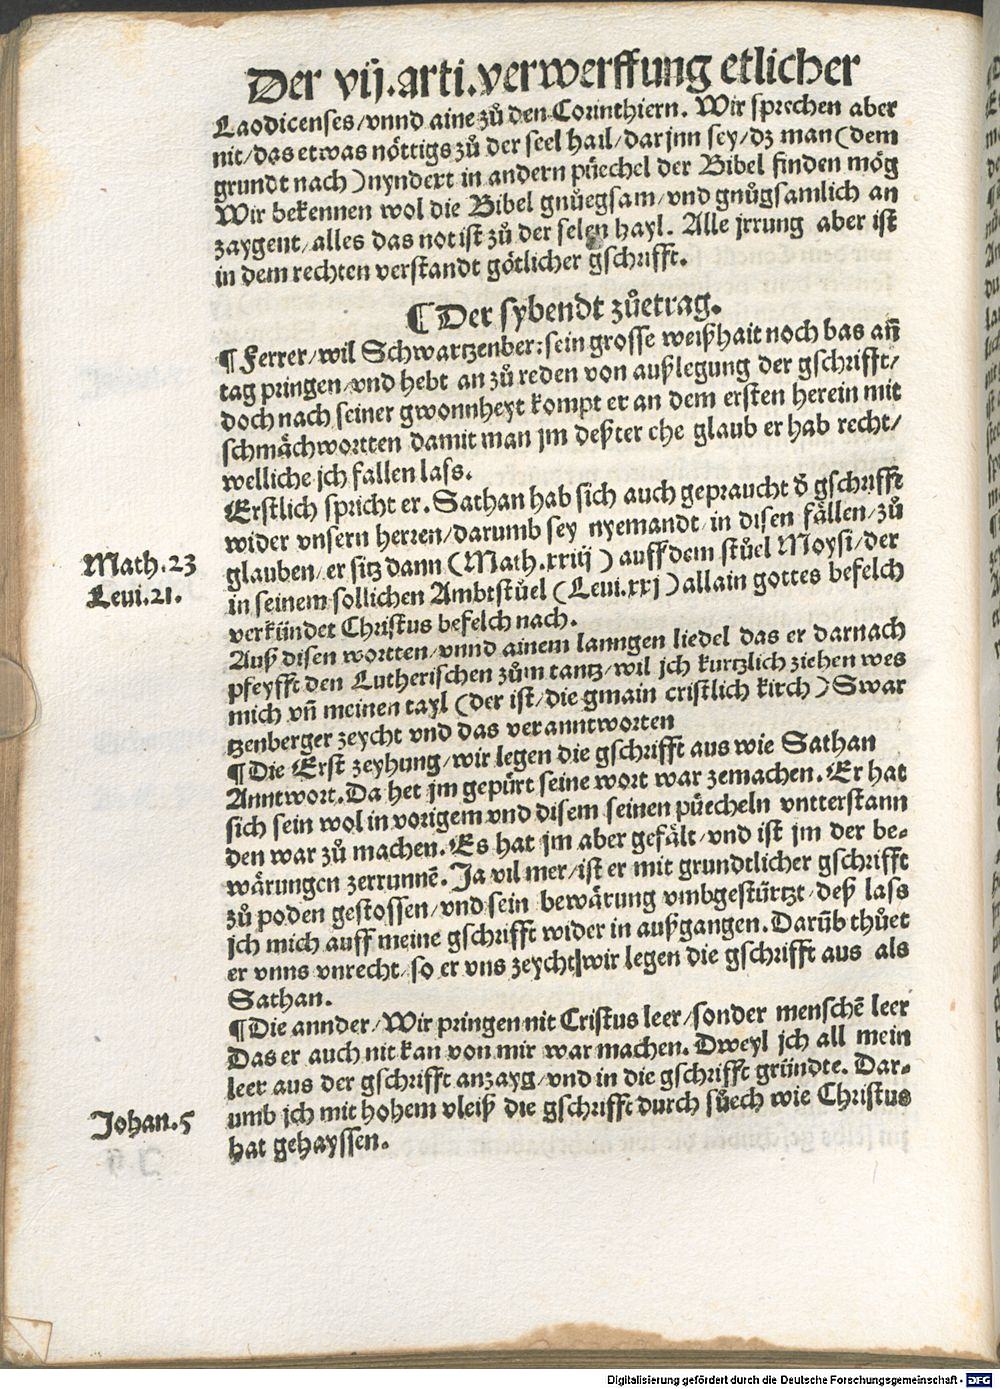 Der vij.arti.verwerffung etlicher
Laodicenses/vnnd aine zů den Corinthiern. Wir sprechen aber
nit/das etwas nöttigs zů der seel hail/darjnn sey/dz man (dem
grundt nach) nyndert in andern püechel der Bibel finden mög
Wir bekennen wol die Bibel gnůegsam/vnd gnůgsamlich an
zaygent/alles das not ist zů der selen hayl. Alle jrrung aber ist
in dem rechten verstandt götlicher gschrifft.
¶ Der sybendt zůetrag.
¶ Ferrer/wil Schwartzenber: sein grosse weißhait noch bas an̄
tag pringen/vnd hebt an zů reden von außlegung der gschrifft/
doch nach seiner gwonnheyt kompt er an dem ersten herein mit
schmächwortten damit man jm deßter ehe glaub er hab recht/
welliche jch fallen lass.
Erstlich spricht er. Sathan hab sich auch gepraucht d̄ gschrifft
wider vnsern herren/darumb sey nyemandt in disen fällen/zů
glauben/er sitz dann (Math.xxiij) auff dem stůel Moysi/der
in seinem sollichen Ambtstůel (Leui.xxj) allain gottes befelch
verkündet Christus befelch nach.
Auß disen wortten/vnnd ainem lanngen liedel das er darnach
pfeyfft den Lutherischen zům tantz/wil jch kurtzlich ziehen wes
mich vn̄ meinen tayl (der ist/die gmain cristlich kirch) Swar
tzenberger zeycht vnd das veranntworten
¶ Die Erst zeyhung/wir legen die gschrifft aus wie Sathan
Anntwort. Da het jm gepürt seine wort war zemachen. Er hat
sich sein wol in vorigem vnd disem seinen püecheln vntterstann
den war zů machen. Es hat jm aber gefält/vnd ist jm der be-
wärungen zerrunnē. Ja vil mer/ist er mit grundtlicher gschrifft
zů poden gestossen/vnd sein bewärung vmbgestürtzt/deß lass
jch mich auff meine gschrifft wider in außgangen. Darūb thůet
er vnns vnrecht/so er vns zeycht wir legen die gschrifft aus als
Sathan.
¶ Die annder/Wir pringen nit Cristus leer/sonder menschē leer
Das er auch nit kan von mir war machen. Dweyl jch all mein
leer aus der gschrifft anzayg/vnd in die gschrifft gründte. Dar-
umb jch mit hohem vleiß die gschrifft durch sůech wie Christus
hat gehayssen.
Math.23
Leui.21.
Johan.5
Digitalisierung gefördert durch die Deutsche Forschungsgemeinschaft - DFG